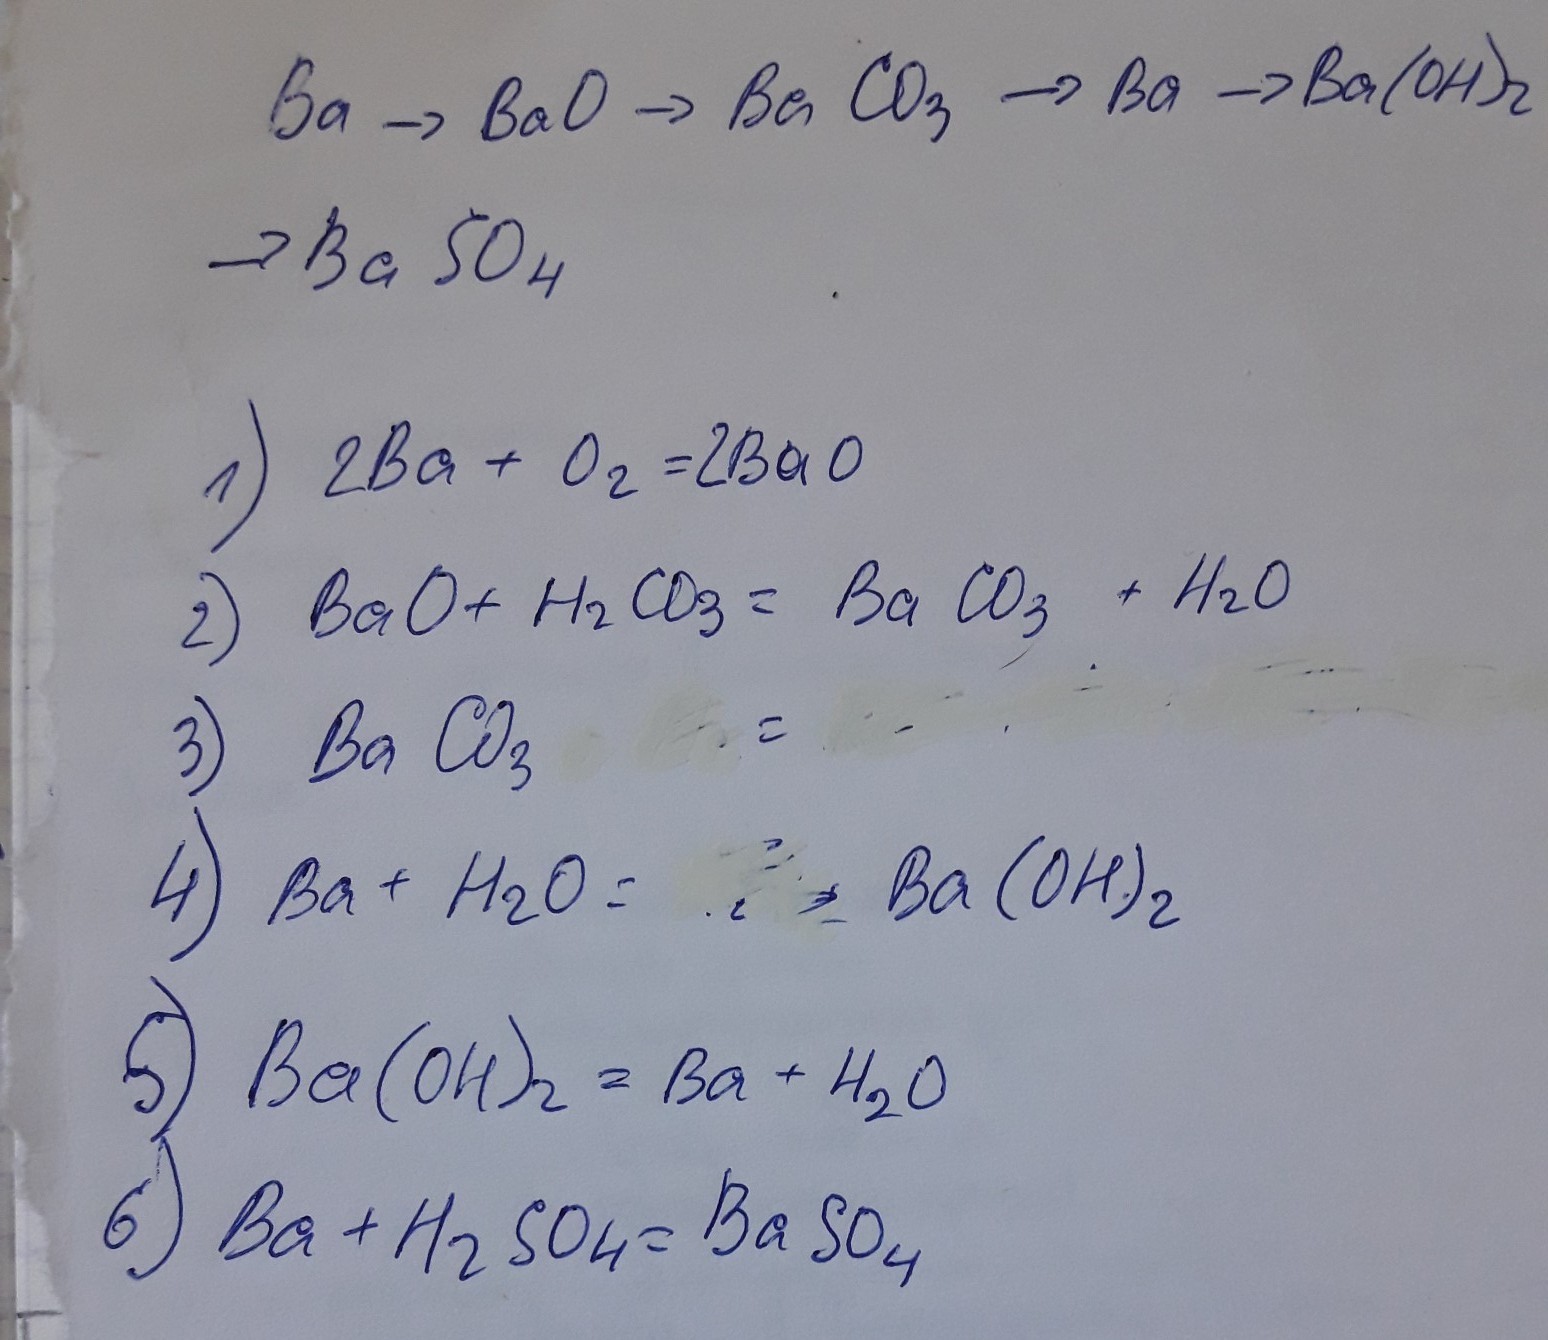 Ba → BaO → BaCO₃ → Ba → Ba(OH)₂
→ BaSO₄
1) 2Ba + O₂ = 2BaO
2) BaO + H₂CO₃ = BaCO₃ + H₂O
3) BaCO₃ =
4) Ba + H₂O = Ba(OH)₂
5) Ba(OH)₂ = Ba + H₂O
6) Ba + H₂SO₄ = BaSO₄